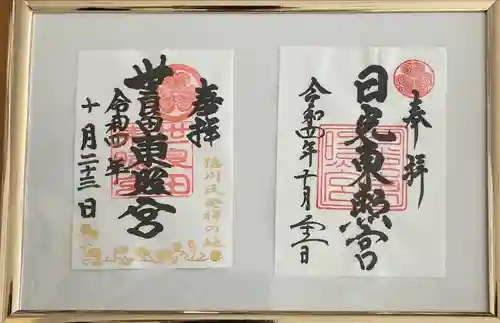 奉拝
日光東照宮
令和四年十月二十二日
奉拝
徳川氏発祥の地
世良田東照宮
令和四年
十月二十三日